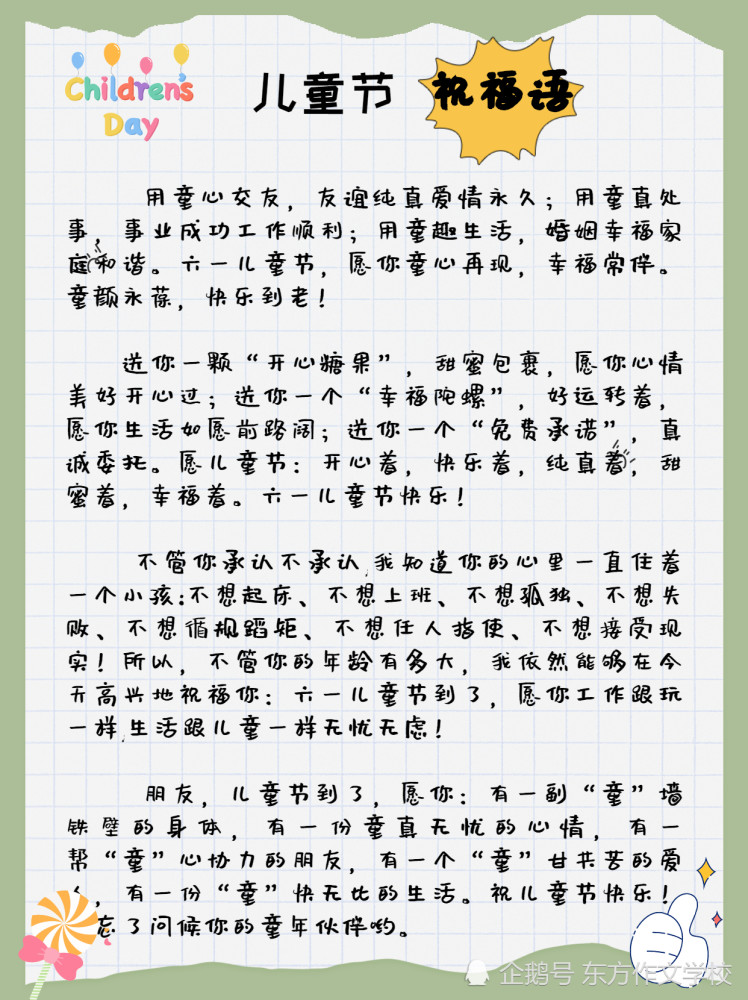 Children's
Day
儿童节 祝福语
用童心交友，友谊纯真爱情永久；用童真处
事，事业成功工作顺利；用童趣生活，婚姻幸福家
庭和谐。六一儿童节，愿你童心再现，幸福常伴。
童颜永葆，快乐到老！
送你一颗“开心糖果”，甜蜜包裹，愿你心情
美好开心过；送你一个“幸福陀螺”，好运转着，
愿你生活如愿前路阔；送你一个“免费承诺”，真
诚委托。愿儿童节：开心着，快乐着，纯真着，甜
蜜着，幸福着。六一儿童节快乐！
不管你承认不承认,我知道你的心里一直住着
一个小孩:不想起床、不想上班、不想孤独、不想失
败、不想循规蹈矩、不想任人指使、不想接受现
实！所以，不管你的年龄有多大，我依然能够在今
天高兴地祝福你：六一儿童节到了，愿你工作跟玩
一样,生活跟儿童一样无忧无虑！
朋友，儿童节到了，愿你：有一副“童”墙
铁壁的身体，有一份童真无忧的心情，有一
帮“童”心协力的朋友，有一个“童”甘共苦的爱
，有一份“童”快无比的生活。祝儿童节快乐！
忘了问候你的童年伙伴哟。
企鹅号 东方作文学校